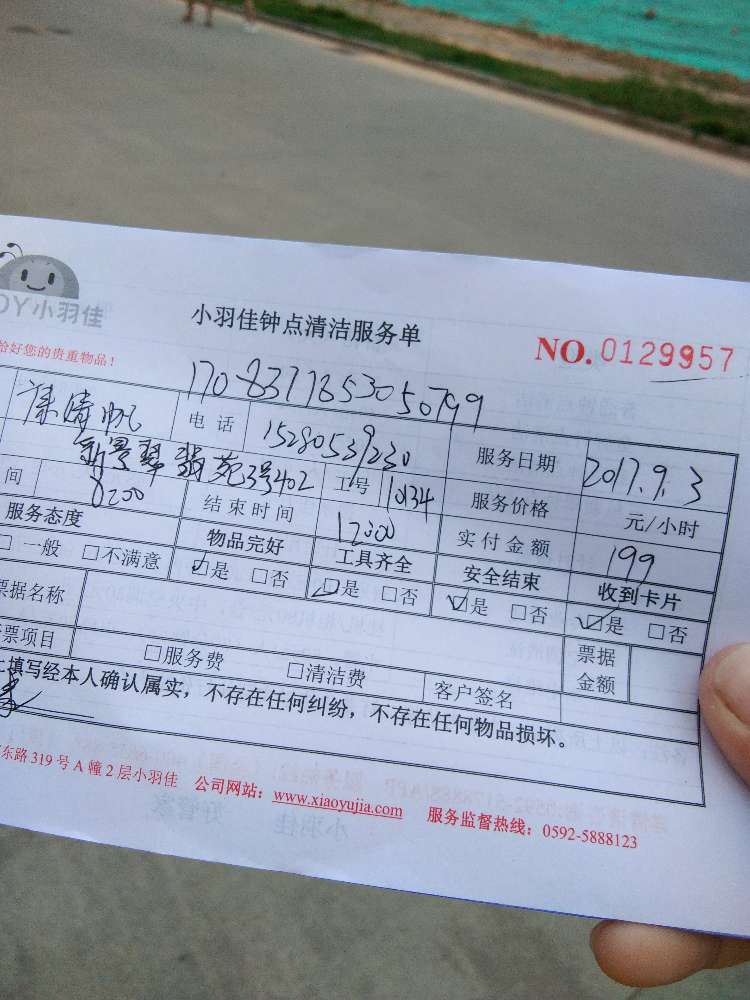 OY小羽佳
小羽佳钟点清洁服务单
NO.0129957
恰好您的贵重物品！
1708377853050799
晴帆 电话 15280539230 服务日期 2017.9.3
新景翠翡苑3号402 工号 10134 服务价格 元/小时
间 8200 结束时间 12000 实付金额 199
服务态度 物品完好 工具齐全 安全结束 收到卡片
□一般 □不满意 ☑是 □否 ☑是 □否 ☑是 □否 ☑是 □否
票据名称 票据金额
票项目 □服务费 □清洁费 客户签名
上填写经本人确认属实，不存在任何纠纷，不存在任何物品损坏。
东路319号A幢2层小羽佳 公司网站：www.xiaoyujia.com 服务监督热线：0592-5888123